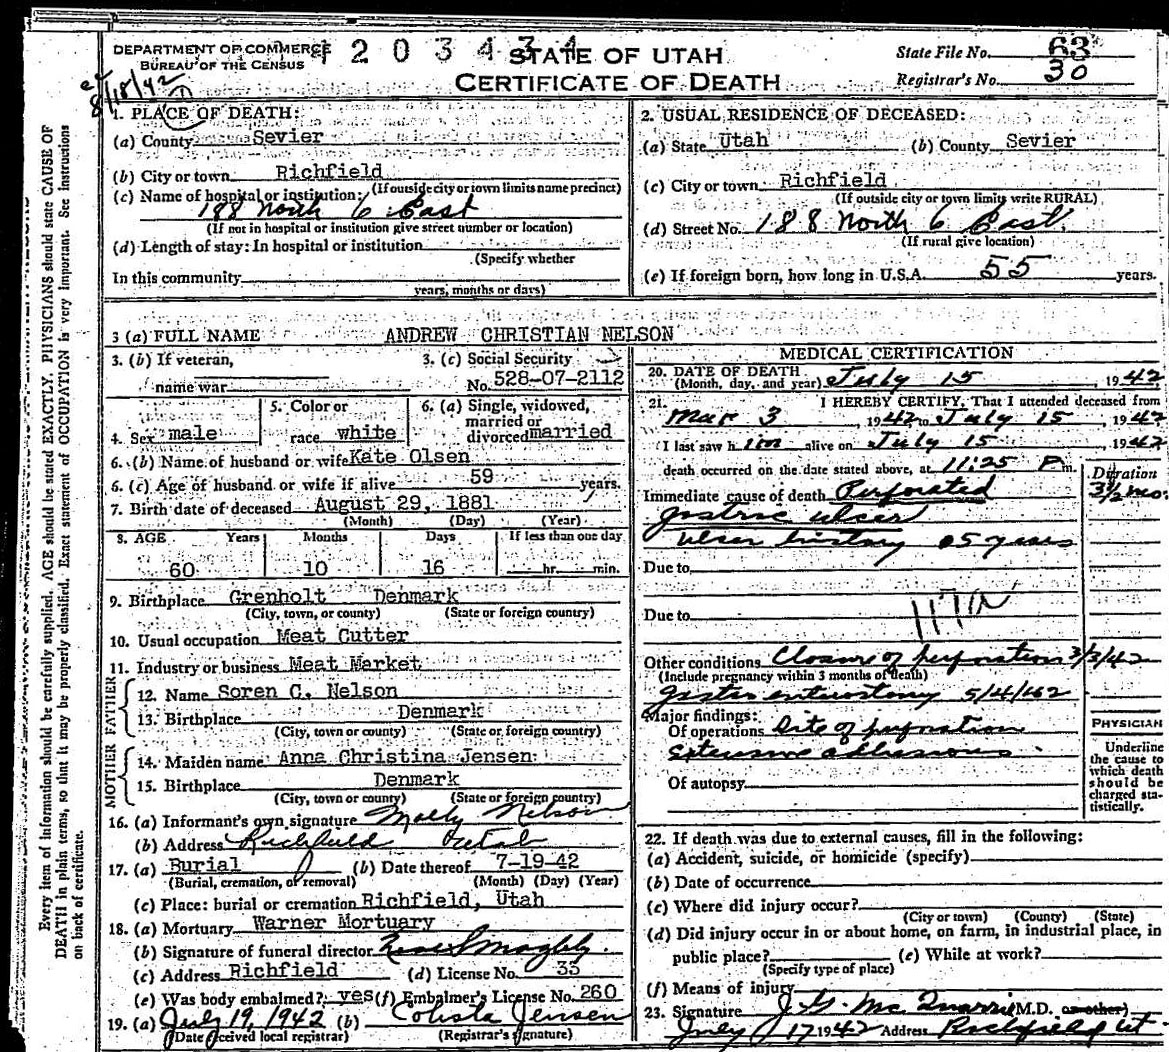 DEPARTMENT OF COMMERCE
BUREAU OF THE CENSUS
4 2 0 3 4 3 4
STATE OF UTAH
CERTIFICATE OF DEATH
State File No. 63
Registrar's No. 30
8/18/42
1. PLACE OF DEATH:
(a) County Sevier
(b) City or town Richfield
(If outside city or town limits name precinct)
(c) Name of hospital or institution:
188 North 6 East
(If not in hospital or institution give street number or location)
(d) Length of stay: In hospital or institution
(Specify whether
In this community
years, months or days)
2. USUAL RESIDENCE OF DECEASED:
(a) State Utah (b) County Sevier
(c) City or town Richfield
(If outside city or town limits write RURAL)
(d) Street No. 188 North 6 East.
(If rural give location)
(e) If foreign born, how long in U.S.A. 55 years.
3 (a) FULL NAME ANDREW CHRISTIAN NELSON
3. (b) If veteran,
name war
3. (c) Social Security
No. 528-07-2112
4. Sex male
5. Color or
race white
6. (a) Single, widowed,
married or
divorced married
6. (b) Name of husband or wife Kate Olsen
6. (c) Age of husband or wife if alive 59 years.
7. Birth date of deceased August 29, 1881
(Month) (Day) (Year)
8. AGE Years Months Days If less than one day
60 10 16 hr. min.
9. Birthplace Grenholt Denmark
(City, town, or county) (State or foreign country)
10. Usual occupation Meat Cutter
11. Industry or business Meat Market
FATHER
12. Name Soren C. Nelson
13. Birthplace Denmark
(City, town or county) (State or foreign country)
MOTHER
14. Maiden name Anna Christina Jensen
15. Birthplace Denmark
(City, town or county) (State or foreign country)
16. (a) Informant's own signature Molly Nelson
(b) Address Richfield Utah
17. (a) Burial (b) Date thereof 7-19-42
(Burial, cremation, or removal) (Month) (Day) (Year)
(c) Place: burial or cremation Richfield, Utah
18. (a) Mortuary Warner Mortuary
(b) Signature of funeral director
(c) Address Richfield (d) License No. 33
(e) Was body embalmed? yes (f) Embalmer's License No. 260
19. (a) July 19, 1942 (b) Jensen
(Date received local registrar) (Registrar's signature)
MEDICAL CERTIFICATION
20. DATE OF DEATH
(Month, day, and year) July 15, 1942
21. I HEREBY CERTIFY, That I attended deceased from
Mar 3, 1942 to July 15, 1942
I last saw him alive on July 15 1942
death occurred on the date stated above, at 11:25 P m.
Duration
Immediate cause of death Perforated 3 1/2 mo.
gastric ulcer
ulcer history 05 years
Due to
117a
Due to
Other conditions Closure of perforation 3/3/42
(Include pregnancy within 3 months of death)
gastro enterostomy 5/4/42
Major findings:
Of operations Site of perforation
extensive adhesions.
Of autopsy
PHYSICIAN
Underline
the cause to
which death
should be
charged sta-
tistically.
22. If death was due to external causes, fill in the following:
(a) Accident, suicide, or homicide (specify)
(b) Date of occurrence
(c) Where did injury occur?
(City or town) (County) (State)
(d) Did injury occur in or about home, on farm, in industrial place, in
public place? (e) While at work?
(Specify type of place)
(f) Means of injury
23. Signature J. G. McQuarrie (M.D. or other)
July 17 1942 Address Richfield Ut.
Every item of information should be carefully supplied. AGE should be stated EXACTLY. PHYSICIANS should state CAUSE OF
DEATH in plain terms, so that it may be properly classified. Exact statement of OCCUPATION is very important. See instructions
on back of certificate.